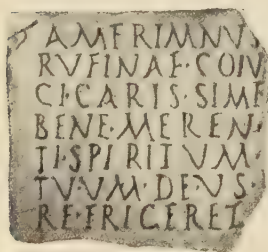 AMERIMNVS
RVFINAE·COIV
CI·CARIS·SIME
BENE·MEREN·
TI·SPIRITVM·
TVVM·DEVS·
REFRICERET